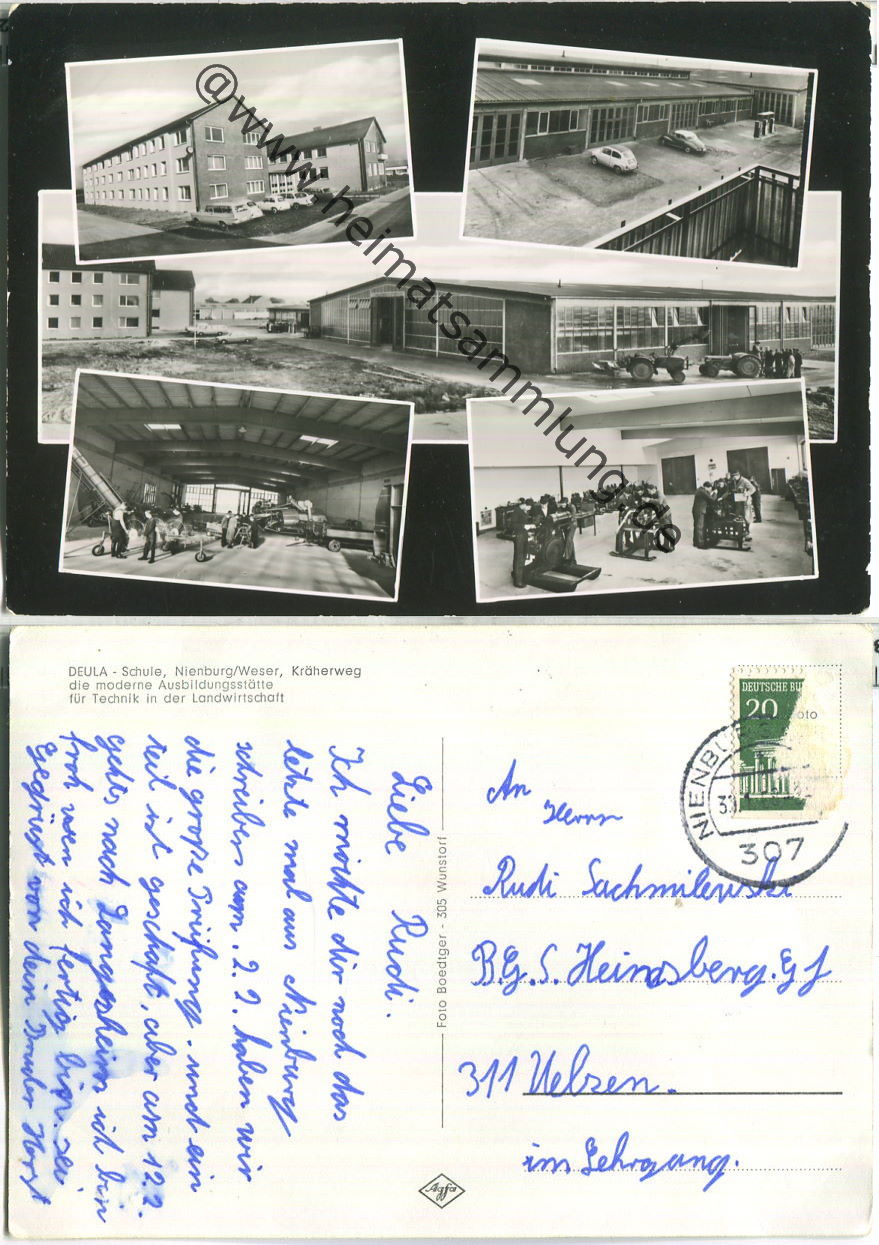 @www.heimatsammlung.de
DEULA - Schule, Nienburg/Weser, Kräherweg
die moderne Ausbildungsstätte
für Technik in der Landwirtschaft
Liebe Rudi.
Ich möchte dir noch das
letzte mal aus Nienburg
schreiben am. 2.2. haben wir
die große Prüfung. und ein
teil ist geschaft, aber am 12.2.
gehts nach Langesheim ich bin
froh wen ich fertig bin. sei
Gegrüßt von dein Bruder Horst
Foto Boedtger - 305 Wunstorf
Agfa
DEUTSCHE BU
20
oto
NIENBU
307
An
Herrn
Rudi Sachmilewski
B.G.S. Heimsberg. G J
311 Uelzen.
im Lehrgang.